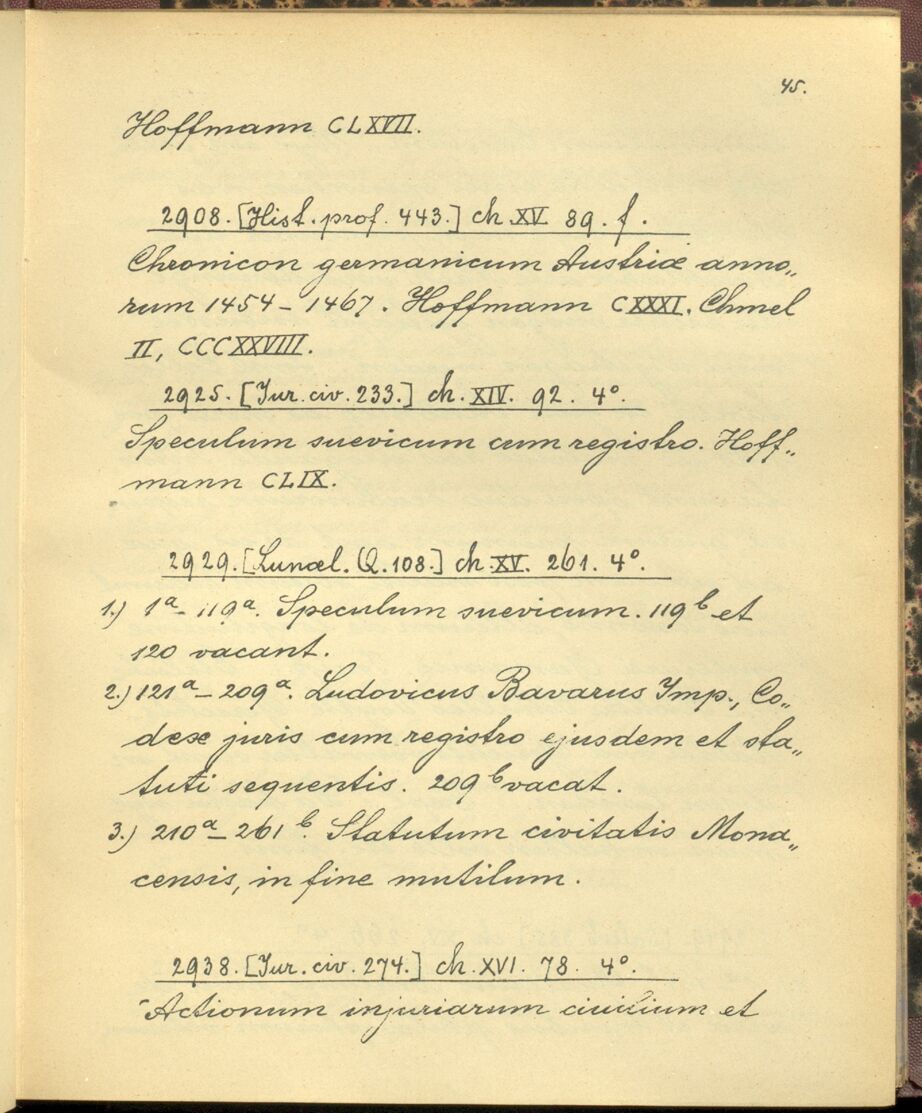 45.
Hoffmann CLXVII.
2908. [Hist. prof. 443.] ch. XV. 89. f.
Chronicon germanicum Austriæ anno„
rum 1454 – 1467. Hoffmann CXXXI. Chmel
II, CCCXXVIII.
2925. [Jur. civ. 233.] ch. XIV. 92. 4°.
Speculum suevicum cum registro. Hoff„
mann CLIX.
2929. [Lunæl. Q. 108.] ch. XV. 261. 4°.
1.) 1ª – 119ª. Speculum suevicum. 119ᵇ et
120 vacant.
2.) 121ª – 209ª. Ludovicus Bavarus Imp., Co„
dex juris cum registro ejusdem et sta„
tuti sequentis. 209ᵇ vacat.
3.) 210ª – 261ᵇ. Statutum civitatis Mona„
censis, in fine mutilum.
2938. [Jur. civ. 274.] ch. XVI. 78. 4°.
Actionum injuriarum civilium et